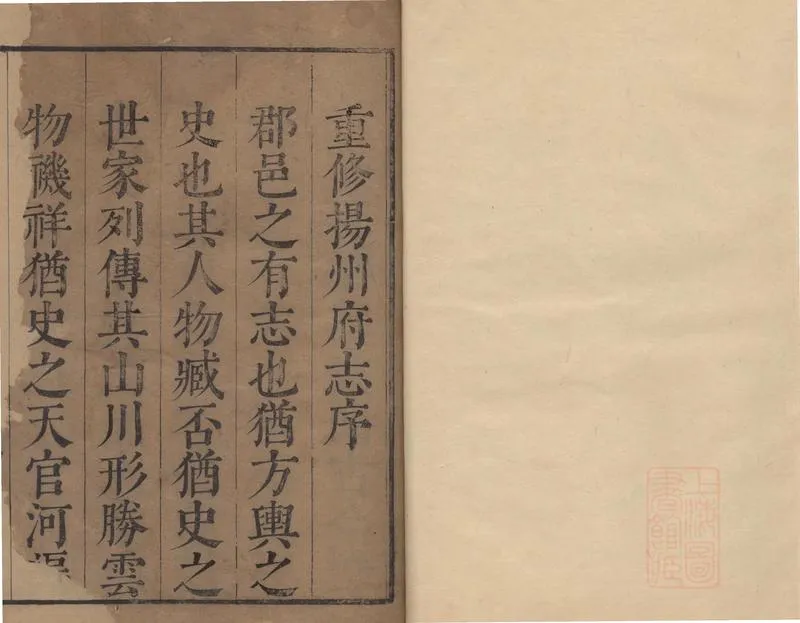 重修揚州府志序
郡邑之有志也猶方輿之
史也其人物臧否猶史之
世家列傳其山川形勝雲
物禨祥猶史之天官河渠
上海圖
書館藏